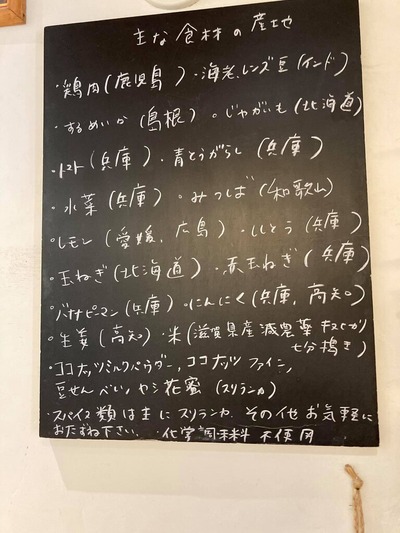 主な食材の産地
・鶏肉(鹿児島)・海老、レンズ豆(インド)
・するめいか(島根)。じゃがいも(北海道)
・トマト(兵庫)・青とうがらし(兵庫)
・水菜(兵庫)・みつば(和歌山)
・レモン(愛媛、広島)・ししとう(兵庫)
・玉ねぎ(北海道)・赤玉ねぎ(兵庫)
・バナナピーマン(兵庫)・にんにく(兵庫、高知)
・生姜(高知)・米(滋賀県産減農薬 キヌヒカリ
七分搗き)
・ココナッツミルクパウダー、ココナッツファイン、
豆せんべい、ヤシ花蜜(スリランカ)
・スパイス類は主にスリランカ、その他お気軽に
おたずね下さい。・化学調味料不使用